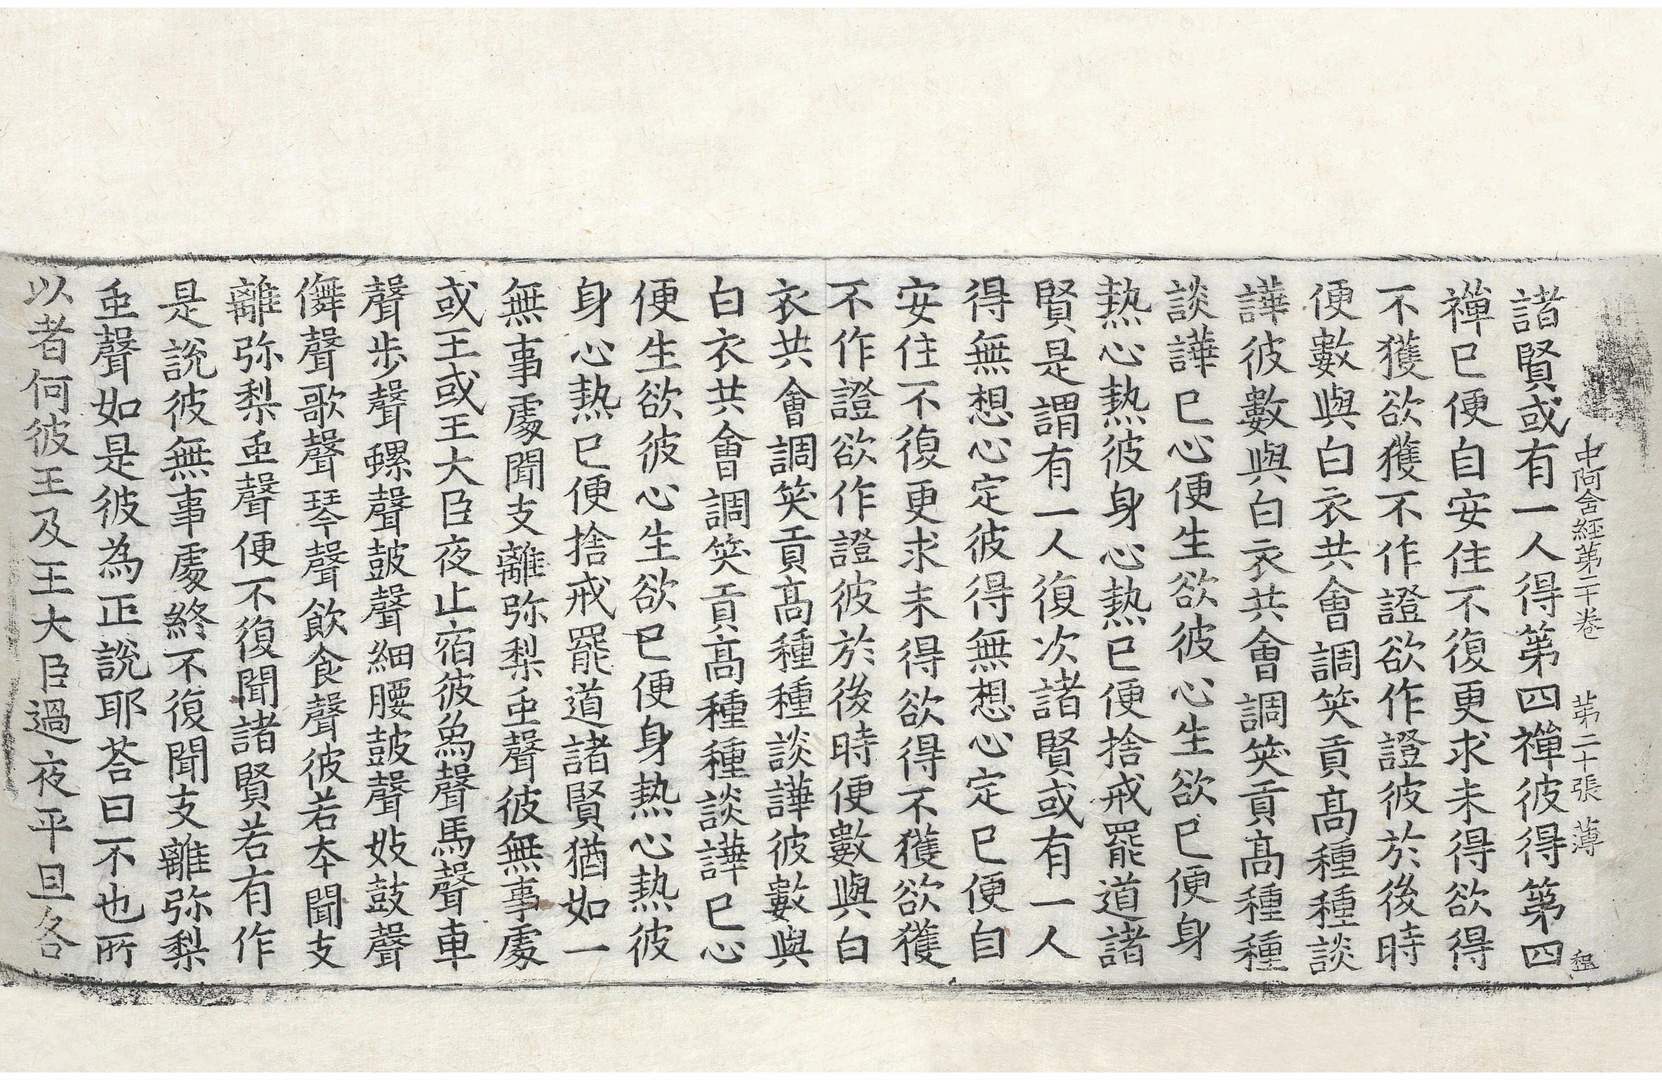 中阿含經第二十卷 第二十張 薄
諸賢或有一人得第四禪彼得第四
禪已便自安住不復更求未得欲得
不獲欲獲不作證欲作證彼於後時
便數與白衣共會調笑貢高種種談
譁彼數與白衣共會調笑貢高種種
談譁已心便生欲彼心生欲已便身
熱心熱彼身心熱已便捨戒罷道諸
賢是謂有一人復次諸賢或有一人
得無想心定彼得無想心定已便自
安住不復更求未得欲得不獲欲獲
不作證欲作證彼於後時便數與白
衣共會調笑貢高種種談譁彼數與
白衣共會調笑貢高種種談譁已心
便生欲彼心生欲已便身熱心熱彼
身心熱已便捨戒罷道諸賢猶如一
無事處聞支離弥梨䖝聲彼無事處
或王或王大臣夜止宿彼象聲馬聲車
聲步聲螺聲鼓聲細腰鼓聲妓鼓聲
儛聲歌聲琴聲飲食聲彼若本聞支
離弥梨䖝聲便不復聞諸賢若有作
是說彼無事處終不復聞支離弥梨
䖝聲如是彼為正說耶荅曰不也所
以者何彼王及王大臣過夜平旦各